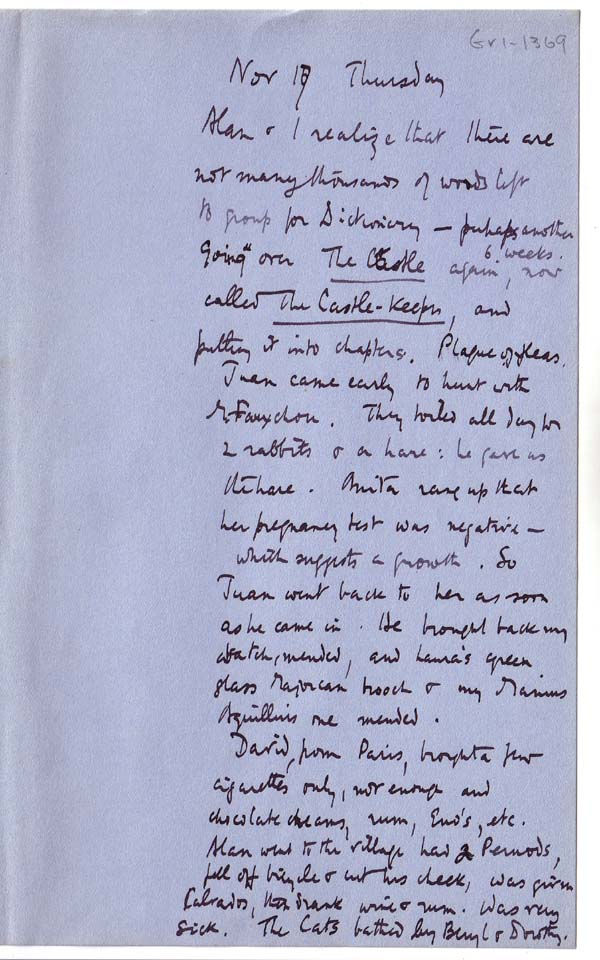 Gr1-1369
Nov 17 Thursday
Alan & I realize that there are
not many thousands of words left
to group for Dictionary — perhaps another
6 weeks.
Going over The Castle again, now
called The Castle-Keeps, and
putting it into chapters. Plague of fleas.
Juan came early to hunt with
M. Fauxchou. They toiled all day for
2 rabbits & a hare: he gave us
the hare. Anita rang up that
her pregnancy test was negative —
which suggests a growth. So
Juan went back to her as soon
as he came in. He brought back my
watch, mended, and Laura's green
glass Majorcan brooch & my Manius
Aquillius one mended.
David, from Paris, brought a few
cigarettes only, not enough and
chocolate creams, rum, Eno's, etc.
Alan went to the village had 2 Pernods,
fell off bicycle & cut his cheek, was given
Calvados, then drank wine & rum. Was very
sick. The Cats bathed by Beryl & Dorothy.